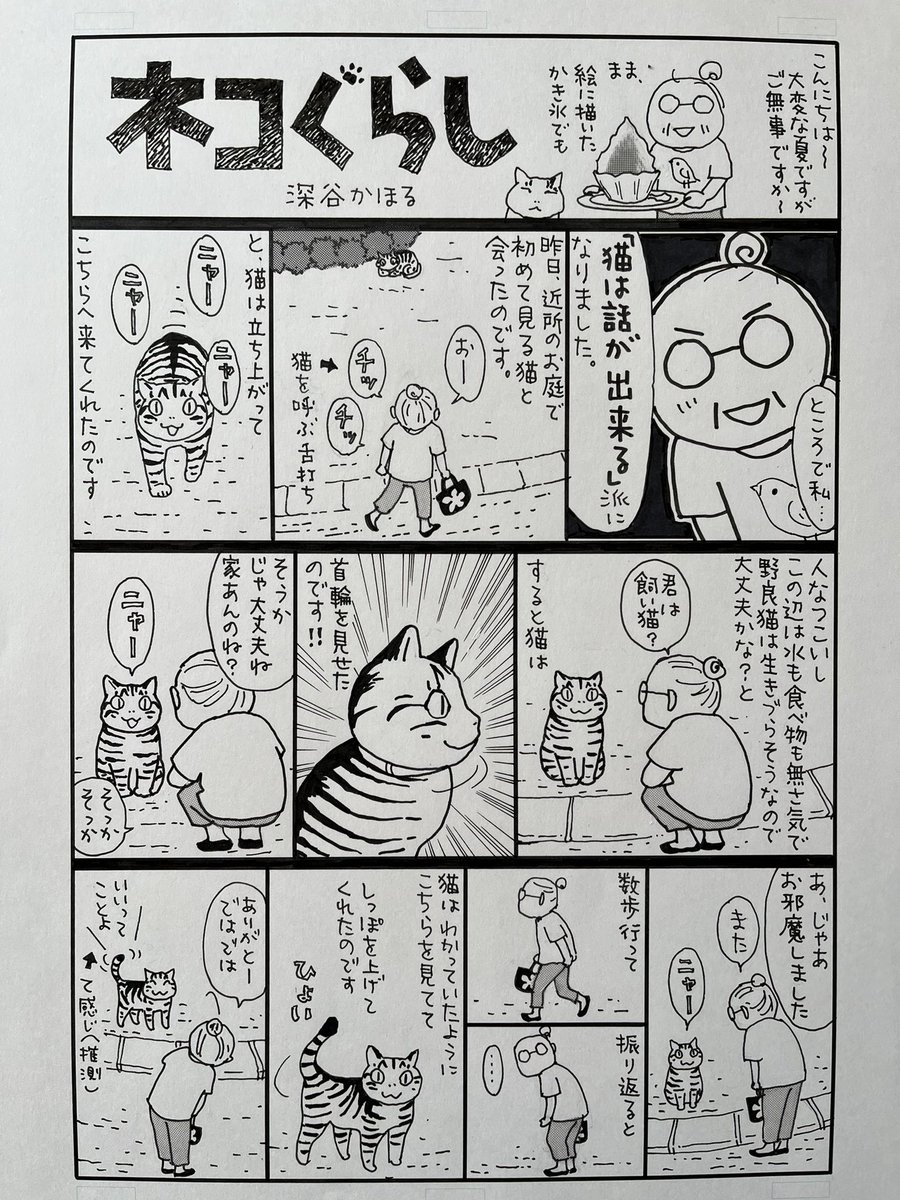 ネコぐらし
深谷かほる
こんにちは〜
大変な夏ですが
ご無事ですか〜
ま、
絵に描いた
かき氷でも
ところで私…
「猫は話が出来る」派に
なりました。
昨日、近所のお庭で
初めて見る猫と
会ったのです。
おー
チッ
チッ
猫を呼ぶ舌打ち
と、猫は立ち上がって
ニャー
ニャー
ニャー
こちらへ来てくれたのです
人なつこいし
この辺は水も食べ物も無さ気で
野良猫は生きづらそうなので
大丈夫かな?と
君は
飼い猫?
すると猫は
首輪を見せた
のです!!
そうか
じゃ大丈夫ね
家あんのね?
ニャー
そっか
そっか
あ、じゃあ
お邪魔しました
また
ニャー
数歩行って
振り返ると
……
猫はわかっていたように
こちらを見てて
しっぽを上げて
くれたのです
ひょい
ありがとー
ではでは
いいって
ことよ
て感じ(推測)